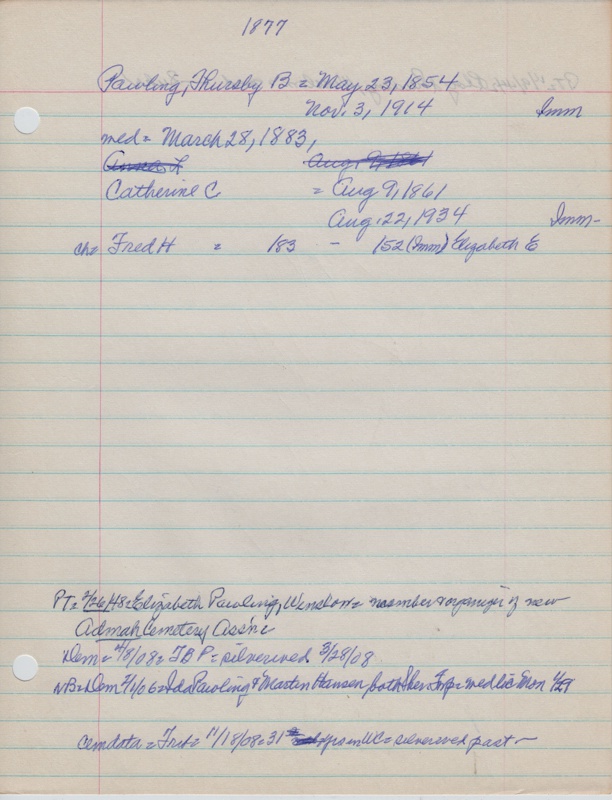 1877
Pawling, Thursby B = May 23, 1854
Nov. 3, 1914 Imm
med = March 28, 1883,
Aug. 9, 1861
Catherine C = Aug 9, 1861
Aug. 22, 1934 Imm -
ch = Fred H = 183 - 152 (Imm) Elizabeth E
PT = 2/26/48 = Elizabeth Pawling, Winslow = member & organizer of new
Admah Cemetery Ass'n
Dem = 4/8/08 = TBP = silverwed 3/28/08
NB = Dem 2/1/06 = Ida Pawling & Martin Hansen, both = wed lic Mon 1/29
Cemdata = Trib = 11/18/08 = 31 yrs in WC = silverwed past -